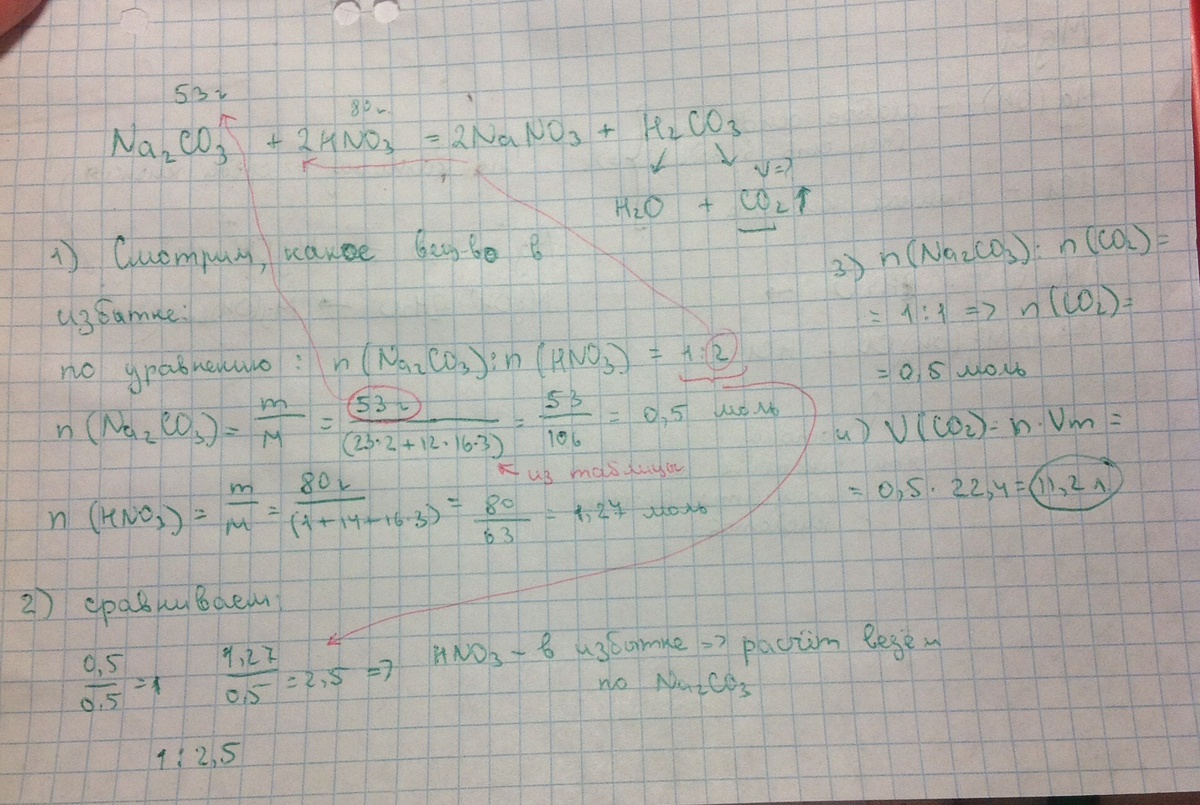 53 г
80 г.
Na₂CO₃ + 2HNO₃ = 2NaNO₃ + H₂CO₃
V=?
H₂O + CO₂↑
1) Смотрим, какое вещ-во в
избытке:
по уравнению: n(Na₂CO₃):n(HNO₃) = 1:2
n(Na₂CO₃)= m/M = 53г/(23·2+12·16·3) = 53/106 = 0,5 моль
из таблицы
n(HNO₃)= m/M = 80г/(1+14+16·3) = 80/63 = 1,27 моль
2) сравниваем:
0,5/0,5=1 1,27/0,5=2,5 => HNO₃ - в избытке => расчёт везём
по Na₂CO₃
1:2,5
3) n(Na₂CO₃):n(CO₂)=
= 1:1 => n(CO₂)=
= 0,5 моль
4) V(CO₂)= n·Vm =
= 0,5·22,4=11,2л